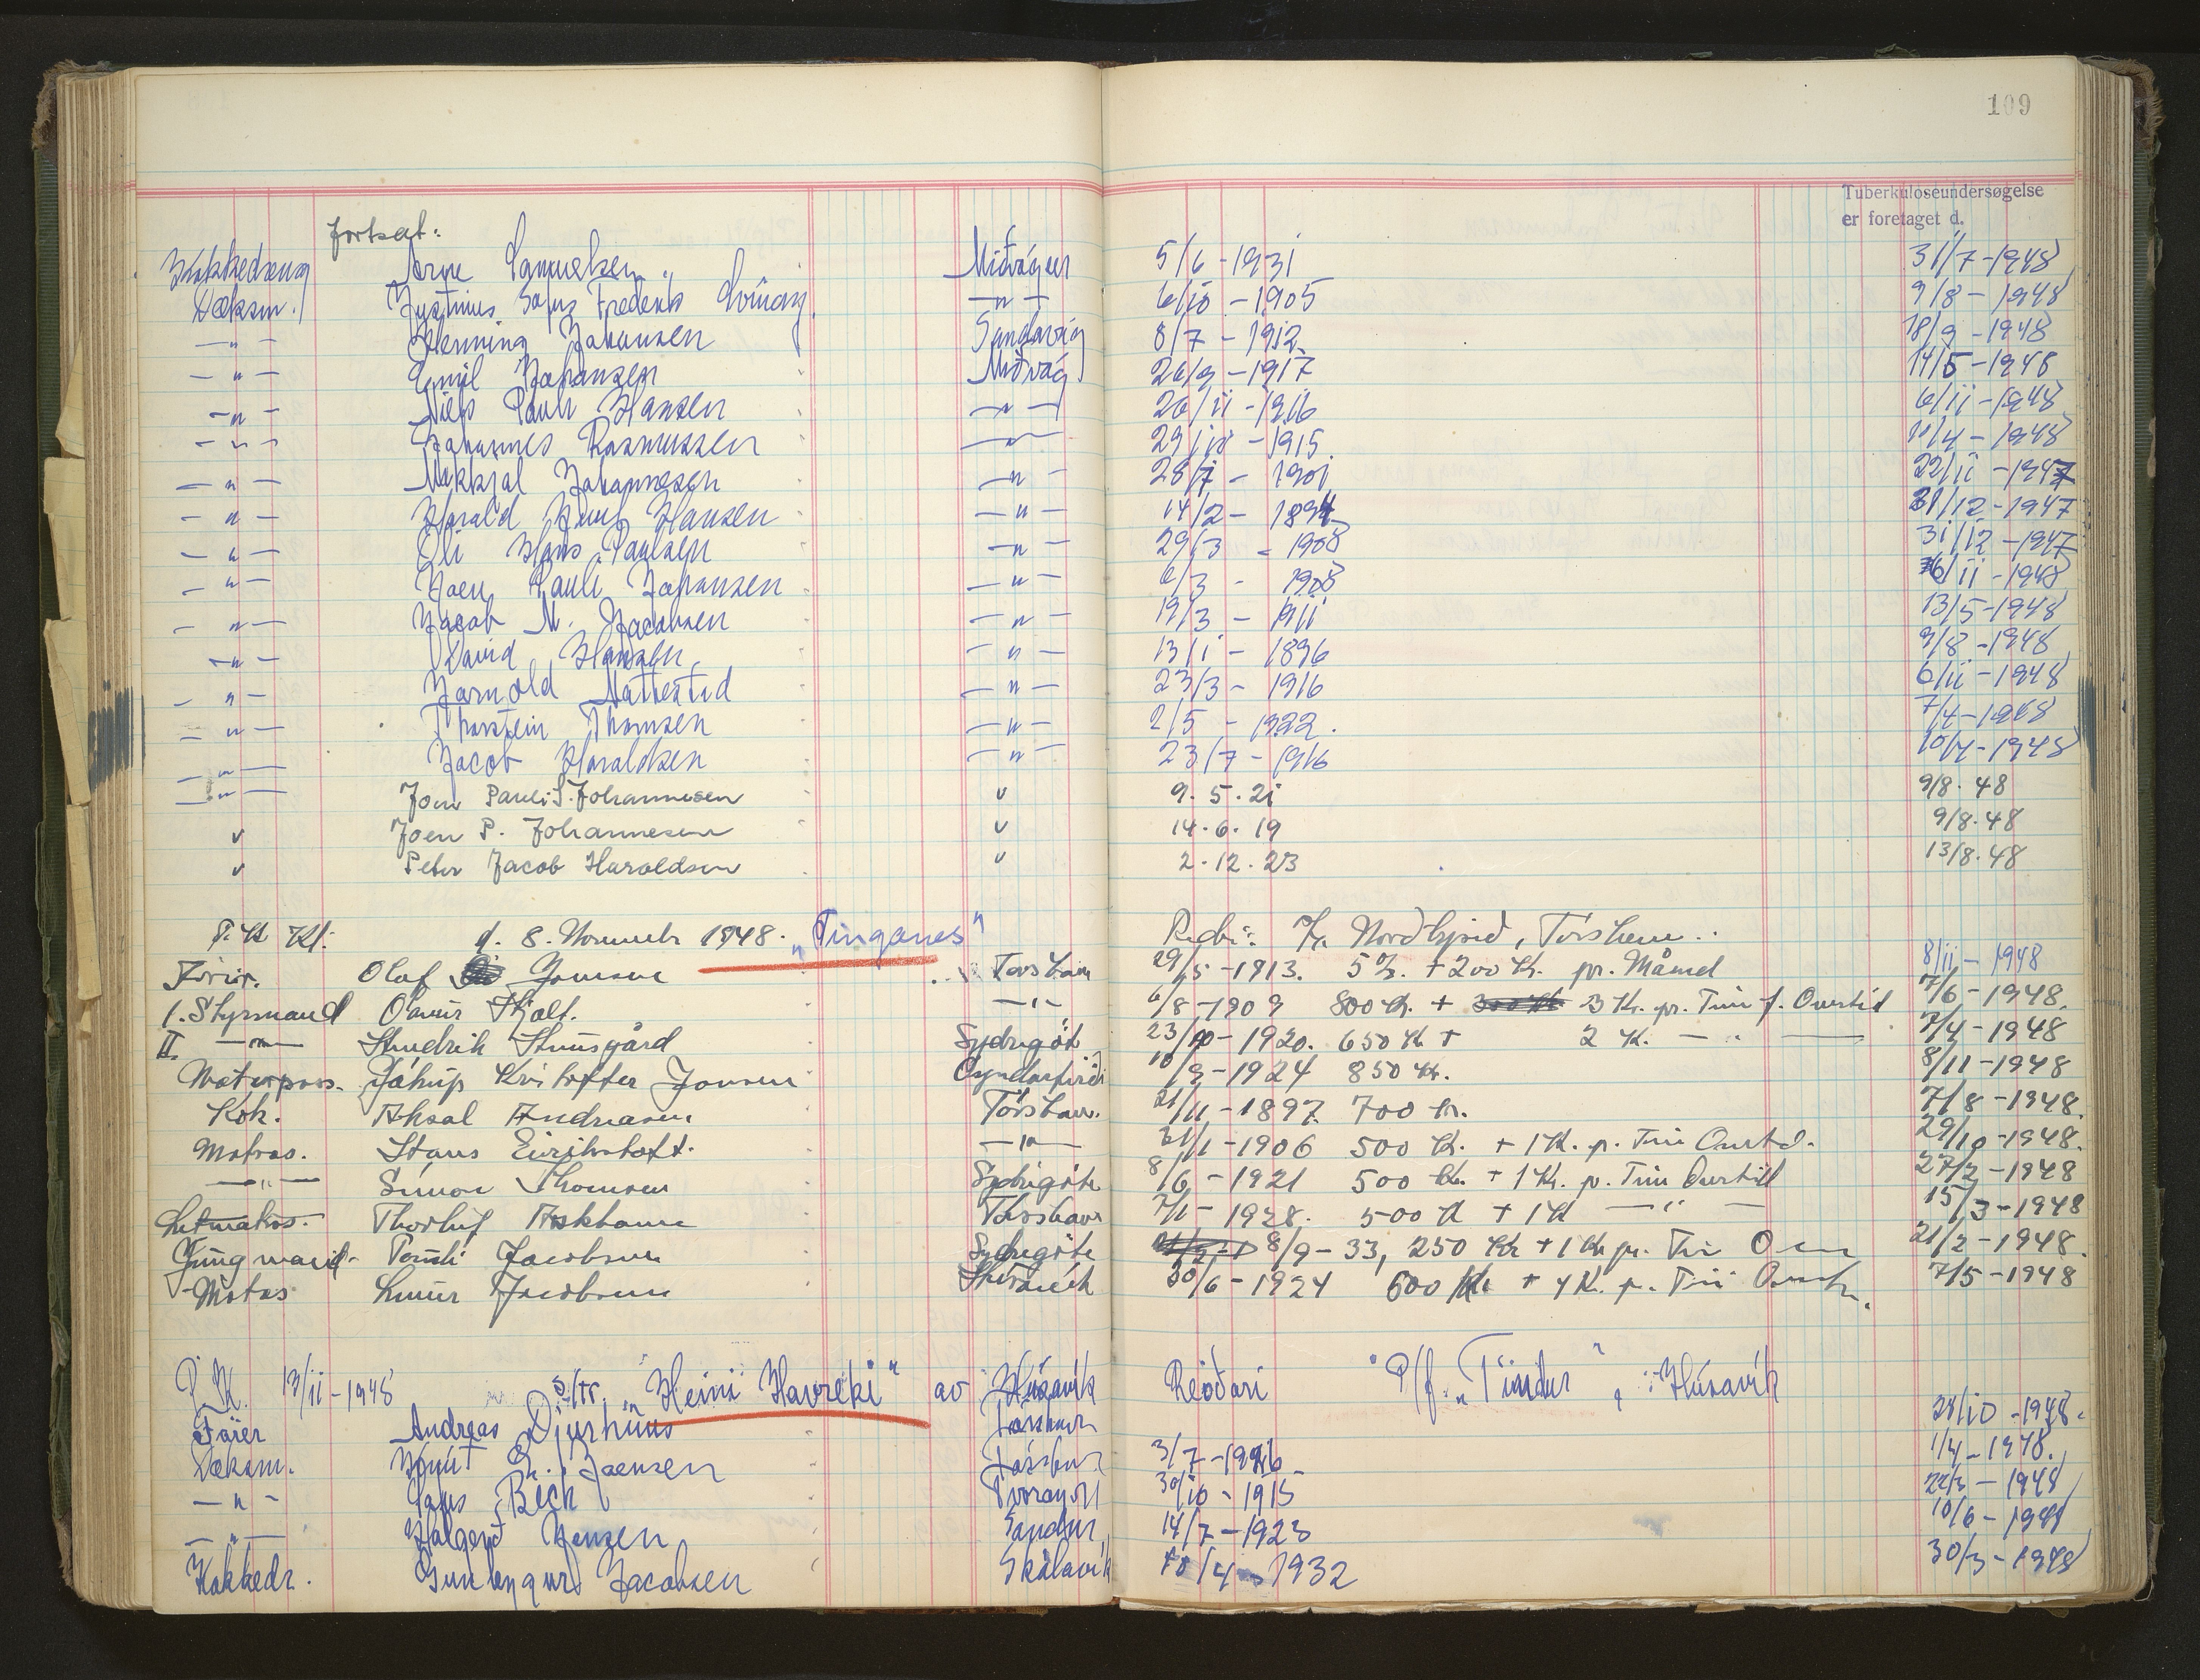 109
Tuberkuloseundersøgelse
er foretaget d.
fortsat:
Kokkedreng Arne Samuelsen Miðvágur 5/6 - 1931 31/7 - 1948
Dæksm. Justinus Frederik 6/10 - 1905 9/8 - 1948
— " — Henning Johansen Sandavág 8/7 - 1912 18/9 - 1948
— " — Emil Johansen Miðvág 26/9 - 1917 14/5 - 1948
— " — Niels Pauli Hansen — " — 26/11 - 1916 6/11 - 1948
— " — Johannes Rasmussen — " — 29/10 - 1915 11/4 - 1948
— " — Johannesen — " — 28/7 - 1901 22/11 - 1947
— " — Harald Hansen — " — 14/2 - 1894 31/12 - 1947
— " — Óli Hans Paulsen — " — 29/3 - 1908 31/12 - 1947
— " — Joen Pauli Johansen — " — 6/3 - 1908 6/11 - 1948
— " — Jacob M. Jacobsen — " — 19/3 - 1911 13/5 - 1948
— " — David Hansen — " — 13/1 - 1896 9/8 - 1948
— " — Jarnold Nattestad — " — 23/3 - 1916 6/11 - 1948
— " — Thorstein Thomsen — " — 2/5 - 1922. 7/4 - 1948
— " — Jacob Haraldsen — " — 23/7 - 1916 10/4 - 1948
— " — Joen Pauli S. Johannesen v 9. 5. 21 9/8. 48
v Joen P. Johannesen v 14. 6. 19 9/8. 48
v Peter Jacob Haraldsen v 2. 12. 23 13/8. 48
d. 8. November 1948. "Tinganes" Tórshavn
Olaf Joensen Torshavn 29/5 - 1913. 5 %. + 200 Kr. pr. Måned 8/11 - 1948
1. Styrmand 6/8 - 1909 800 Kr. + 3 Kr. pr. Time f. Overtid 7/6 - 1948.
II. — " — Hendrik Sydrugöte 23/10 - 1920. 650 Kr + 2 Kr. — " — 7/4 - 1948
Motorpass. Jákup Kristoffer Joensen 10/9 - 1924 850 Kr. 8/11 - 1948
Kok. Aksal Andreasen Tórshavn. 21/11 - 1897. 700 Kr. 7/8 - 1948.
Matros. Hans Eirikstoft. — " — 31/1 - 1906 500 Kr. + 1 Kr. p. Time Overtid. 29/10 - 1948.
— " — Simon Thomsen Sydrugöte 8/6 - 1921 500 Kr. + 1 Kr. p. Time Overtid 27/2 - 1948
Letmatros. Thorleif Askham Tórshavn 7/1 - 1928. 500 Kr + 1 Kr — " — 15/3 - 1948
Jungmand. Jacobsen Sydrugöte 8/9 - 33, 250 Kr + 1 Kr pr. Time 21/2 - 1948.
Matros Jacobsen 30/6 - 1924 600 Kr. + 1 Kr. p. Time 7/5 - 1948
P. K. 13/11 - 1948 s/tr. "Heini Havreki" av Húsavík Reiðari P/f. "Tindur", Húsavík
Förer Andreas Djurhuus Tórshavn 28/10 - 1948.
Dæksm. Knút E. Joensen Tórshavn 3/7 - 1926 1/4 - 1948.
— " — Beck Tvøroyri 30/10 - 1915 22/3 - 1948
— " — Jensen Sandur, 14/7 - 1923 10/6 - 1948
Kokkedr. Gunleygur Jacobsen Skálavík 10/4 - 1932 30/3 - 1948